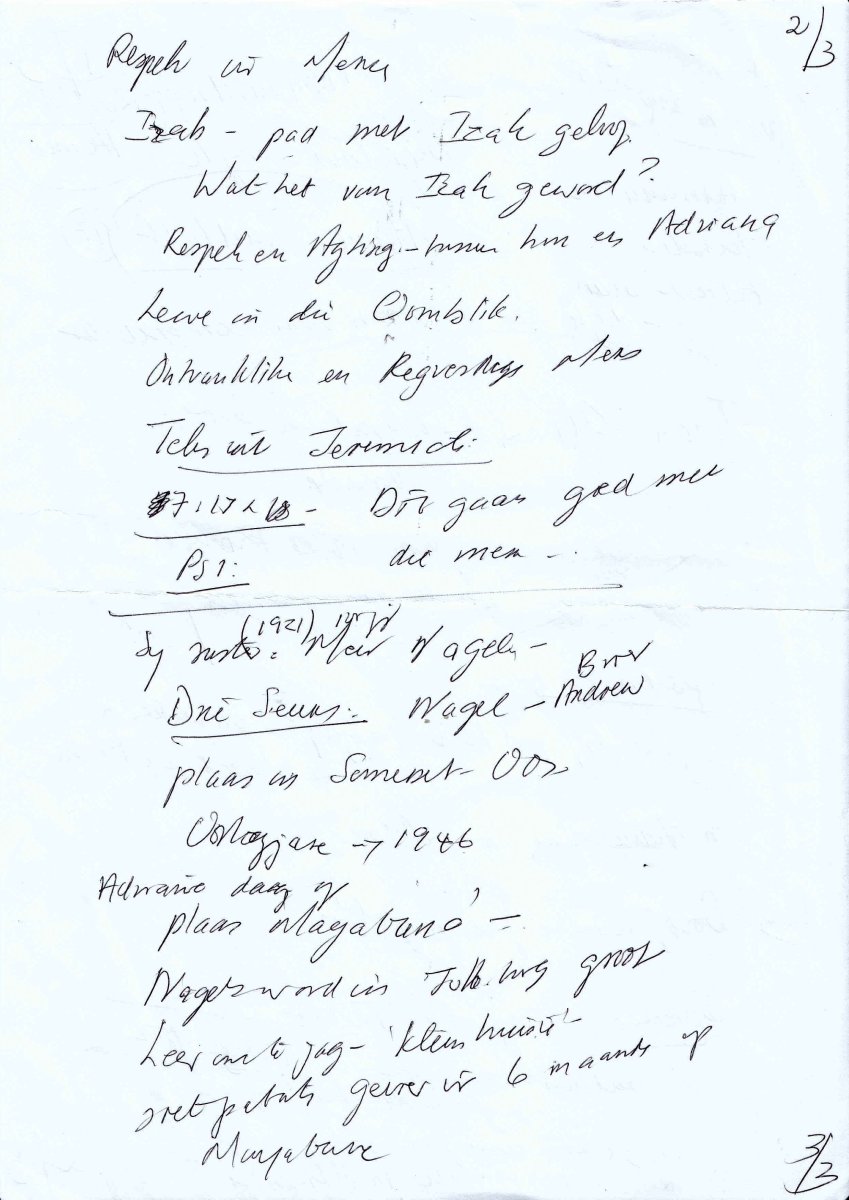 2/3
Respek vir Mense
Izak - pad met Izak geloop.
Wat het van Izak geword?
Respek en Agting - tussen hom en Adriana
Lewe in die Oomblik.
Ontvanklike en Regverdige Mens
Teks uit Jeremia:
17: - Dit gaan goed met
Ps 1: die mens - ..
Sy suster: (1921) Nagel -
Drie Seuns: Nagel - Andrew
plaas in Somerset-Oos
Oorlogjare → 1946
daag op
plaas Magabane -
Nagels word in groot
Leer om te jag - 'kleinhuisie' -
soetpatats geëet vir 6 maande op
Magabane
3/3